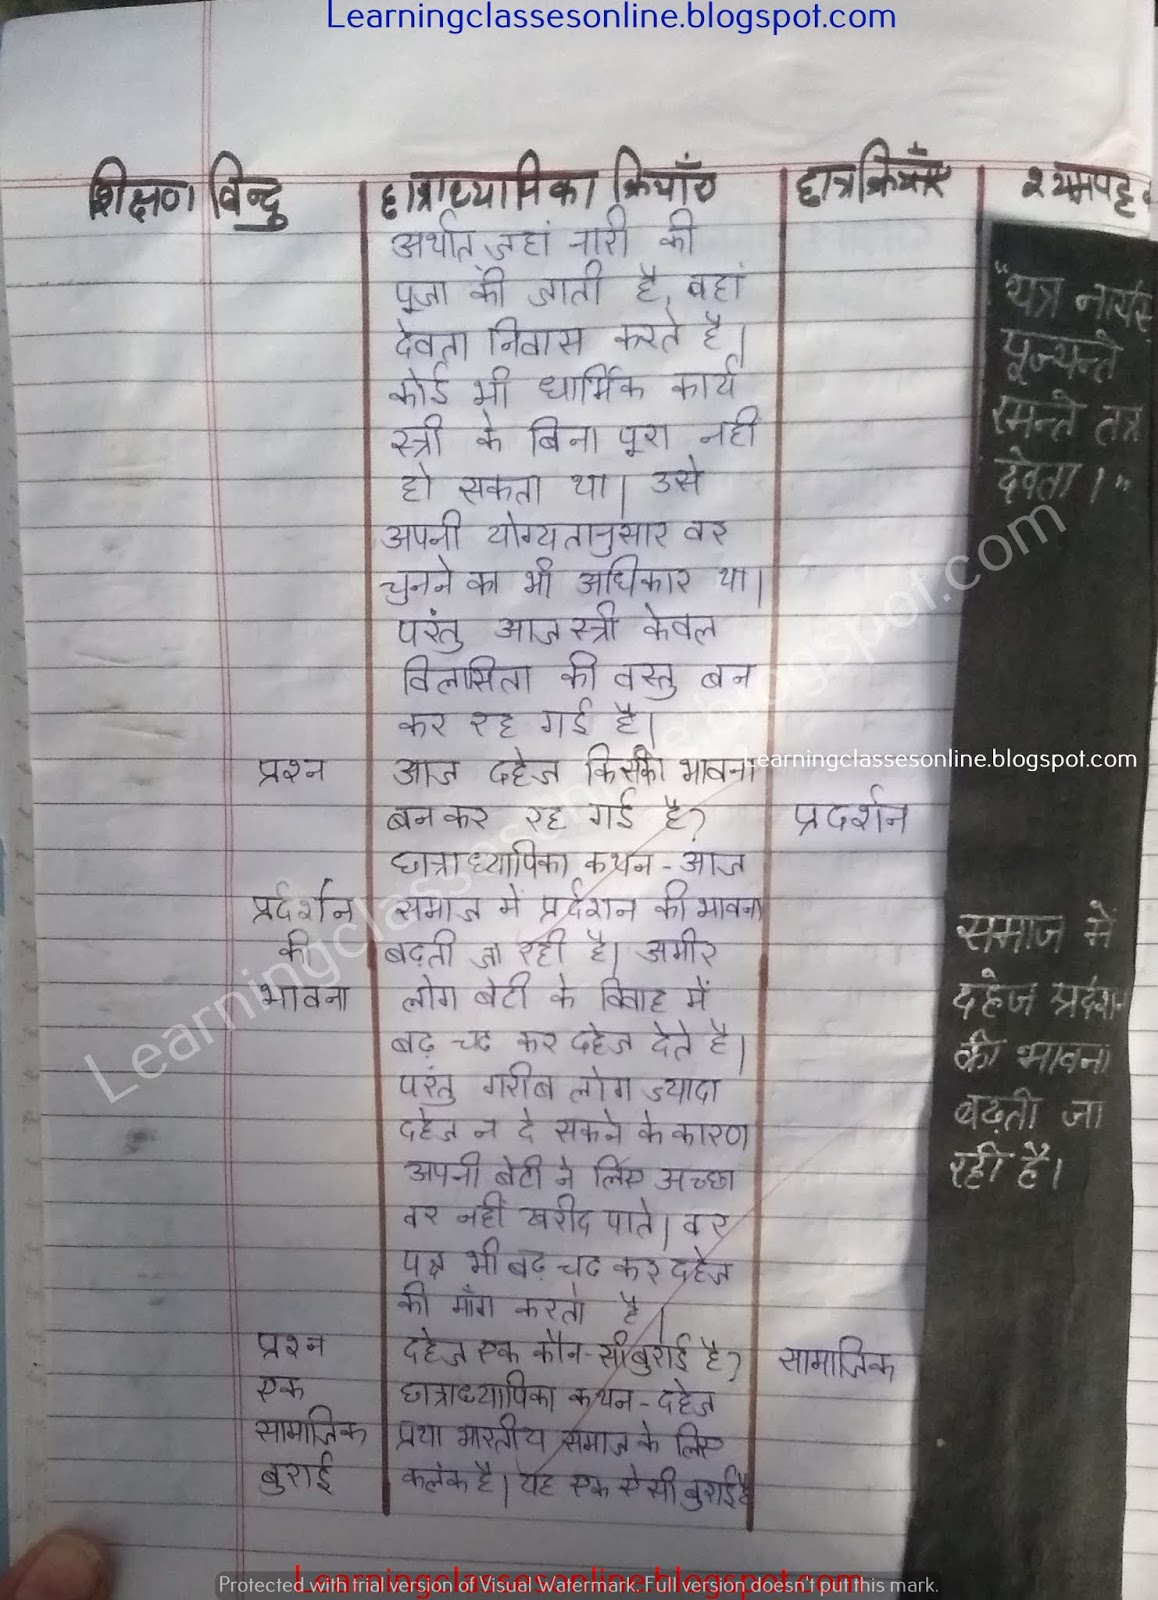 Learningclassesonline.blogspot.com
शिक्षण विन्दु
छात्राध्यापिका क्रियाएँ
छात्रक्रियाएँ
श्यामपट्ट
अर्थात् जहां नारी की
पूजा की जाती है, वहां
देवता निवास करते है।
कोई भी धार्मिक कार्य
स्त्री के बिना पूरा नहीं
हो सकता था। उसे
अपनी योग्यतानुसार वर
चुनने का भी अधिकार था।
परंतु आज स्त्री केवल
विलासिता की वस्तु बन
कर रह गई है।
"यत्र नार्यस
पूज्यन्ते
रमन्ते तत्र
देवता।"
प्रश्न
आज दहेज किसकी भावना
बनकर रह गई है?
प्रदर्शन
Learningclassesonline.blogspot.com
छात्राध्यापिका कथन - आज
प्रर्दर्शन
की
भावना
समाज में प्रर्दशन की भावना
बढ़ती जा रही है। अमीर
लोग बेटी के विवाह में
बढ़ चढ कर दहेज देते है।
परंतु गरीब लोग ज्यादा
दहेज न दे सकने के कारण
अपनी बेटी ने लिए अच्छा
वर नहीं खरीद पाते। वर
पक्ष भी बढ़ चढ कर दहेज
की माँग करता है।
समाज में
दहेज प्रर्दश-
की भावना
बढ़ती जा
रही है।
प्रश्न
दहेज एक कौन-सी बुराई है?
सामाजिक
एक
सामाजिक
बुराई
छात्राध्यापिका कथन - दहेज
प्रथा भारतीय समाज के लिए
कलंक है। यह एक ऐसी बुराई है
Learningclassesonline.blogspot.com
Learningclassesonline.blogspot.com
Protected with trial version of Visual Watermark. Full version doesn't put this mark.